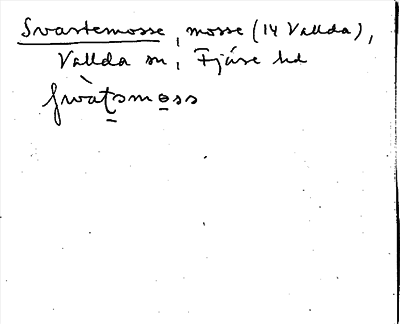 Svartemosse, mosse (14 Vallda),
Vallda sn, Fjäre hd
swàt̲smo̲ss